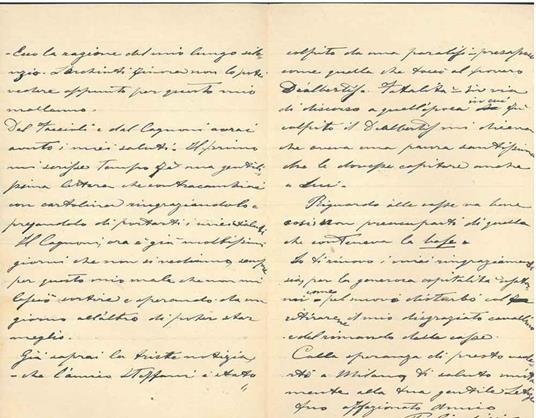 - Ecco la ragione del mio lungo silen-
zio. finora non lo potei
vedere appunto per questo mio
malanno.
Dal e dal Cagnoni avrai
avuto i miei saluti. Il primo
mi scrisse tempo fa una gentilis-
sima lettera che contracambiai
con cartolina ringraziandolo e
pregandolo di portarti i miei saluti.
Il Cagnoni, ora è già moltissimi
giorni che non ci vediamo sempre
per questo mio male che non mi
lascia sortire e sperando da un
giorno all'altro di poter star
meglio.
Già saprai la triste notizia
- che l'amico Steffani è stato
colpito da una paralisi
come quella che toccò al povero
Dealbertis. Fatalità - Si era
di discorso a quell'epoca in cui fu
colpito il Dealbertis mi diceva
che aveva una paura santissima
che le dovesse capitare anche
a Lui -
Riguardo alle casse va bene
così non preoccuparti di quella
che conteneva la base -
Io ti rinnovo i miei ringraziamen-
ti, per la generosa ospitalità
come pel nuovo disturbo
il mio disgraziato cavallino
e del rimando delle casse.
Colla speranza di presto veder-
ti a Milano, ti saluto
mente alla tua gentile
tuo affezionato amico